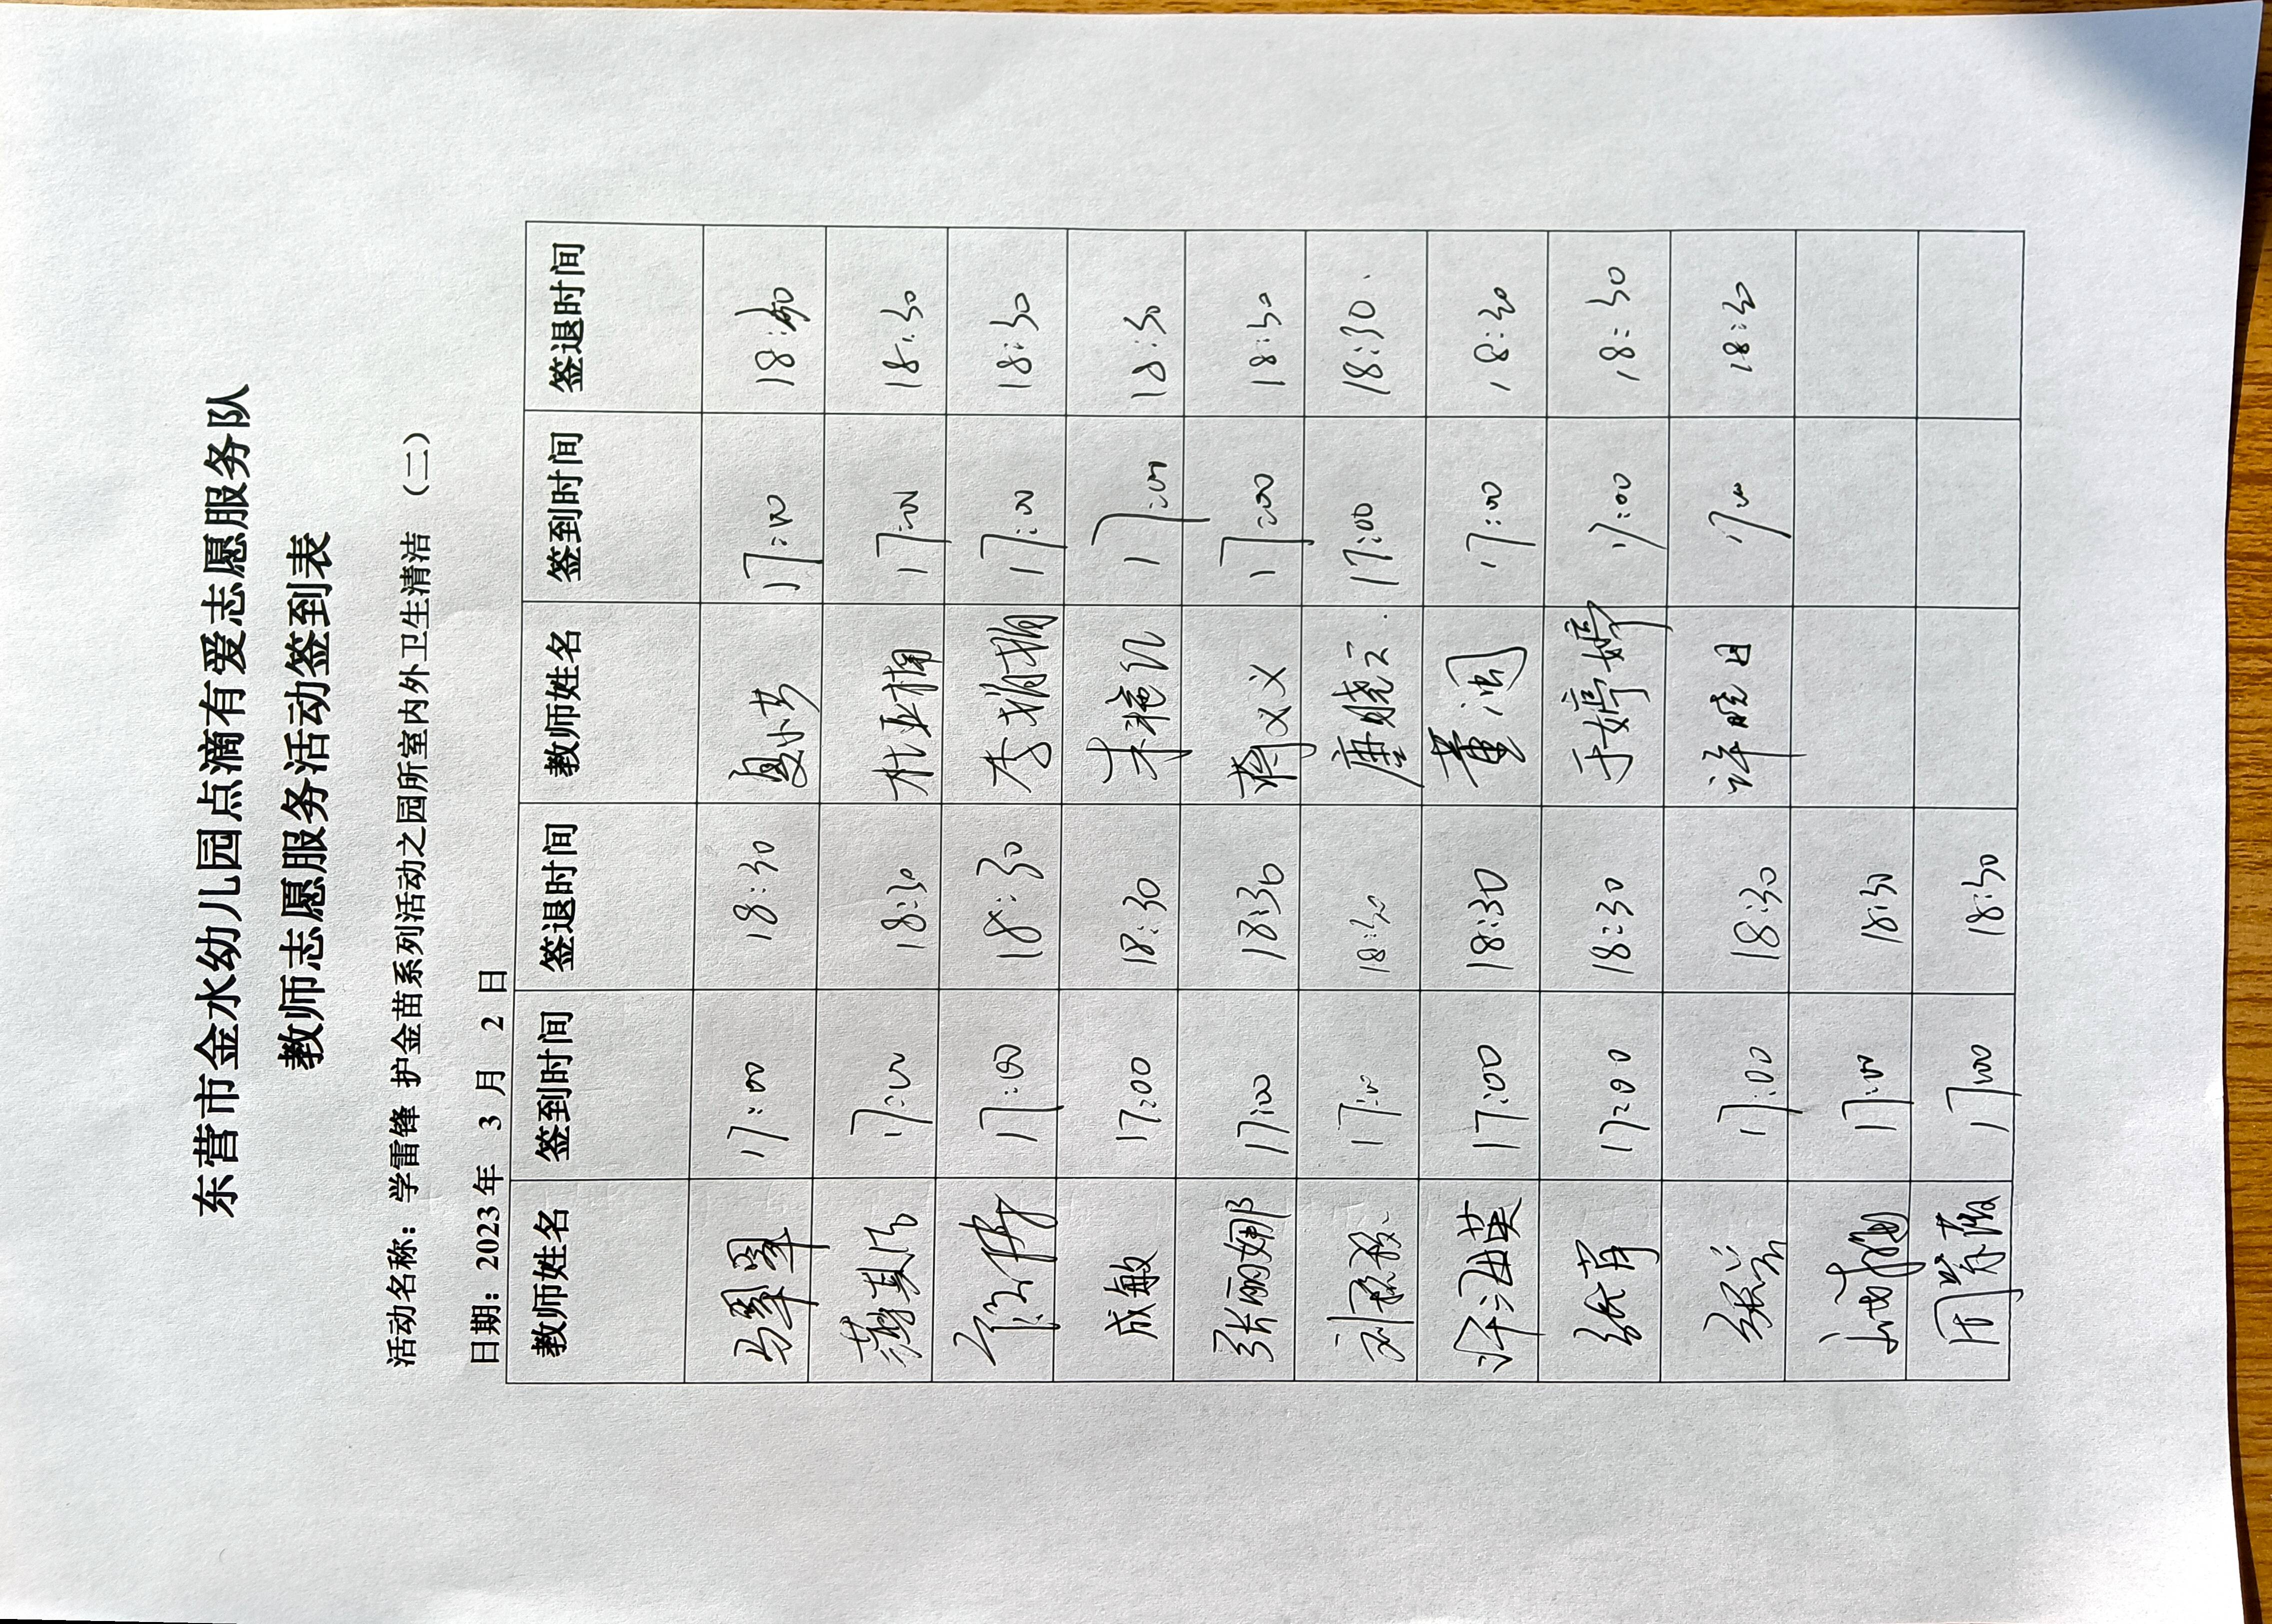 东营市金水幼儿园点滴有爱志愿服务队
教师志愿服务活动签到表
活动名称：学雷锋 护金苗系列活动之园所室内外卫生清洁 （二）
日期：2023 年 3 月 2 日
教师姓名 签到时间 签退时间 教师姓名 签到时间 签退时间
17:00 18:30 17:00 18:30
17:00 18:30 杜亚楠 17:00 18:30
17:00 18:30 李娟娟 17:00 18:30
成敏 17:00 18:30 朱艳红 17:00 18:30
张丽娜 17:00 18:30 蒋义义 17:00 18:30
17:00 18:30 唐晓云. 17:00 18:30.
许海英 17:00 18:30 董润 17:00 18:30
张芹 17:00 18:30 于婷婷 17:00 18:30
17:00 18:30 许晓日 17:00 18:30
17:00 18:30
周翠薇 17:00 18:30